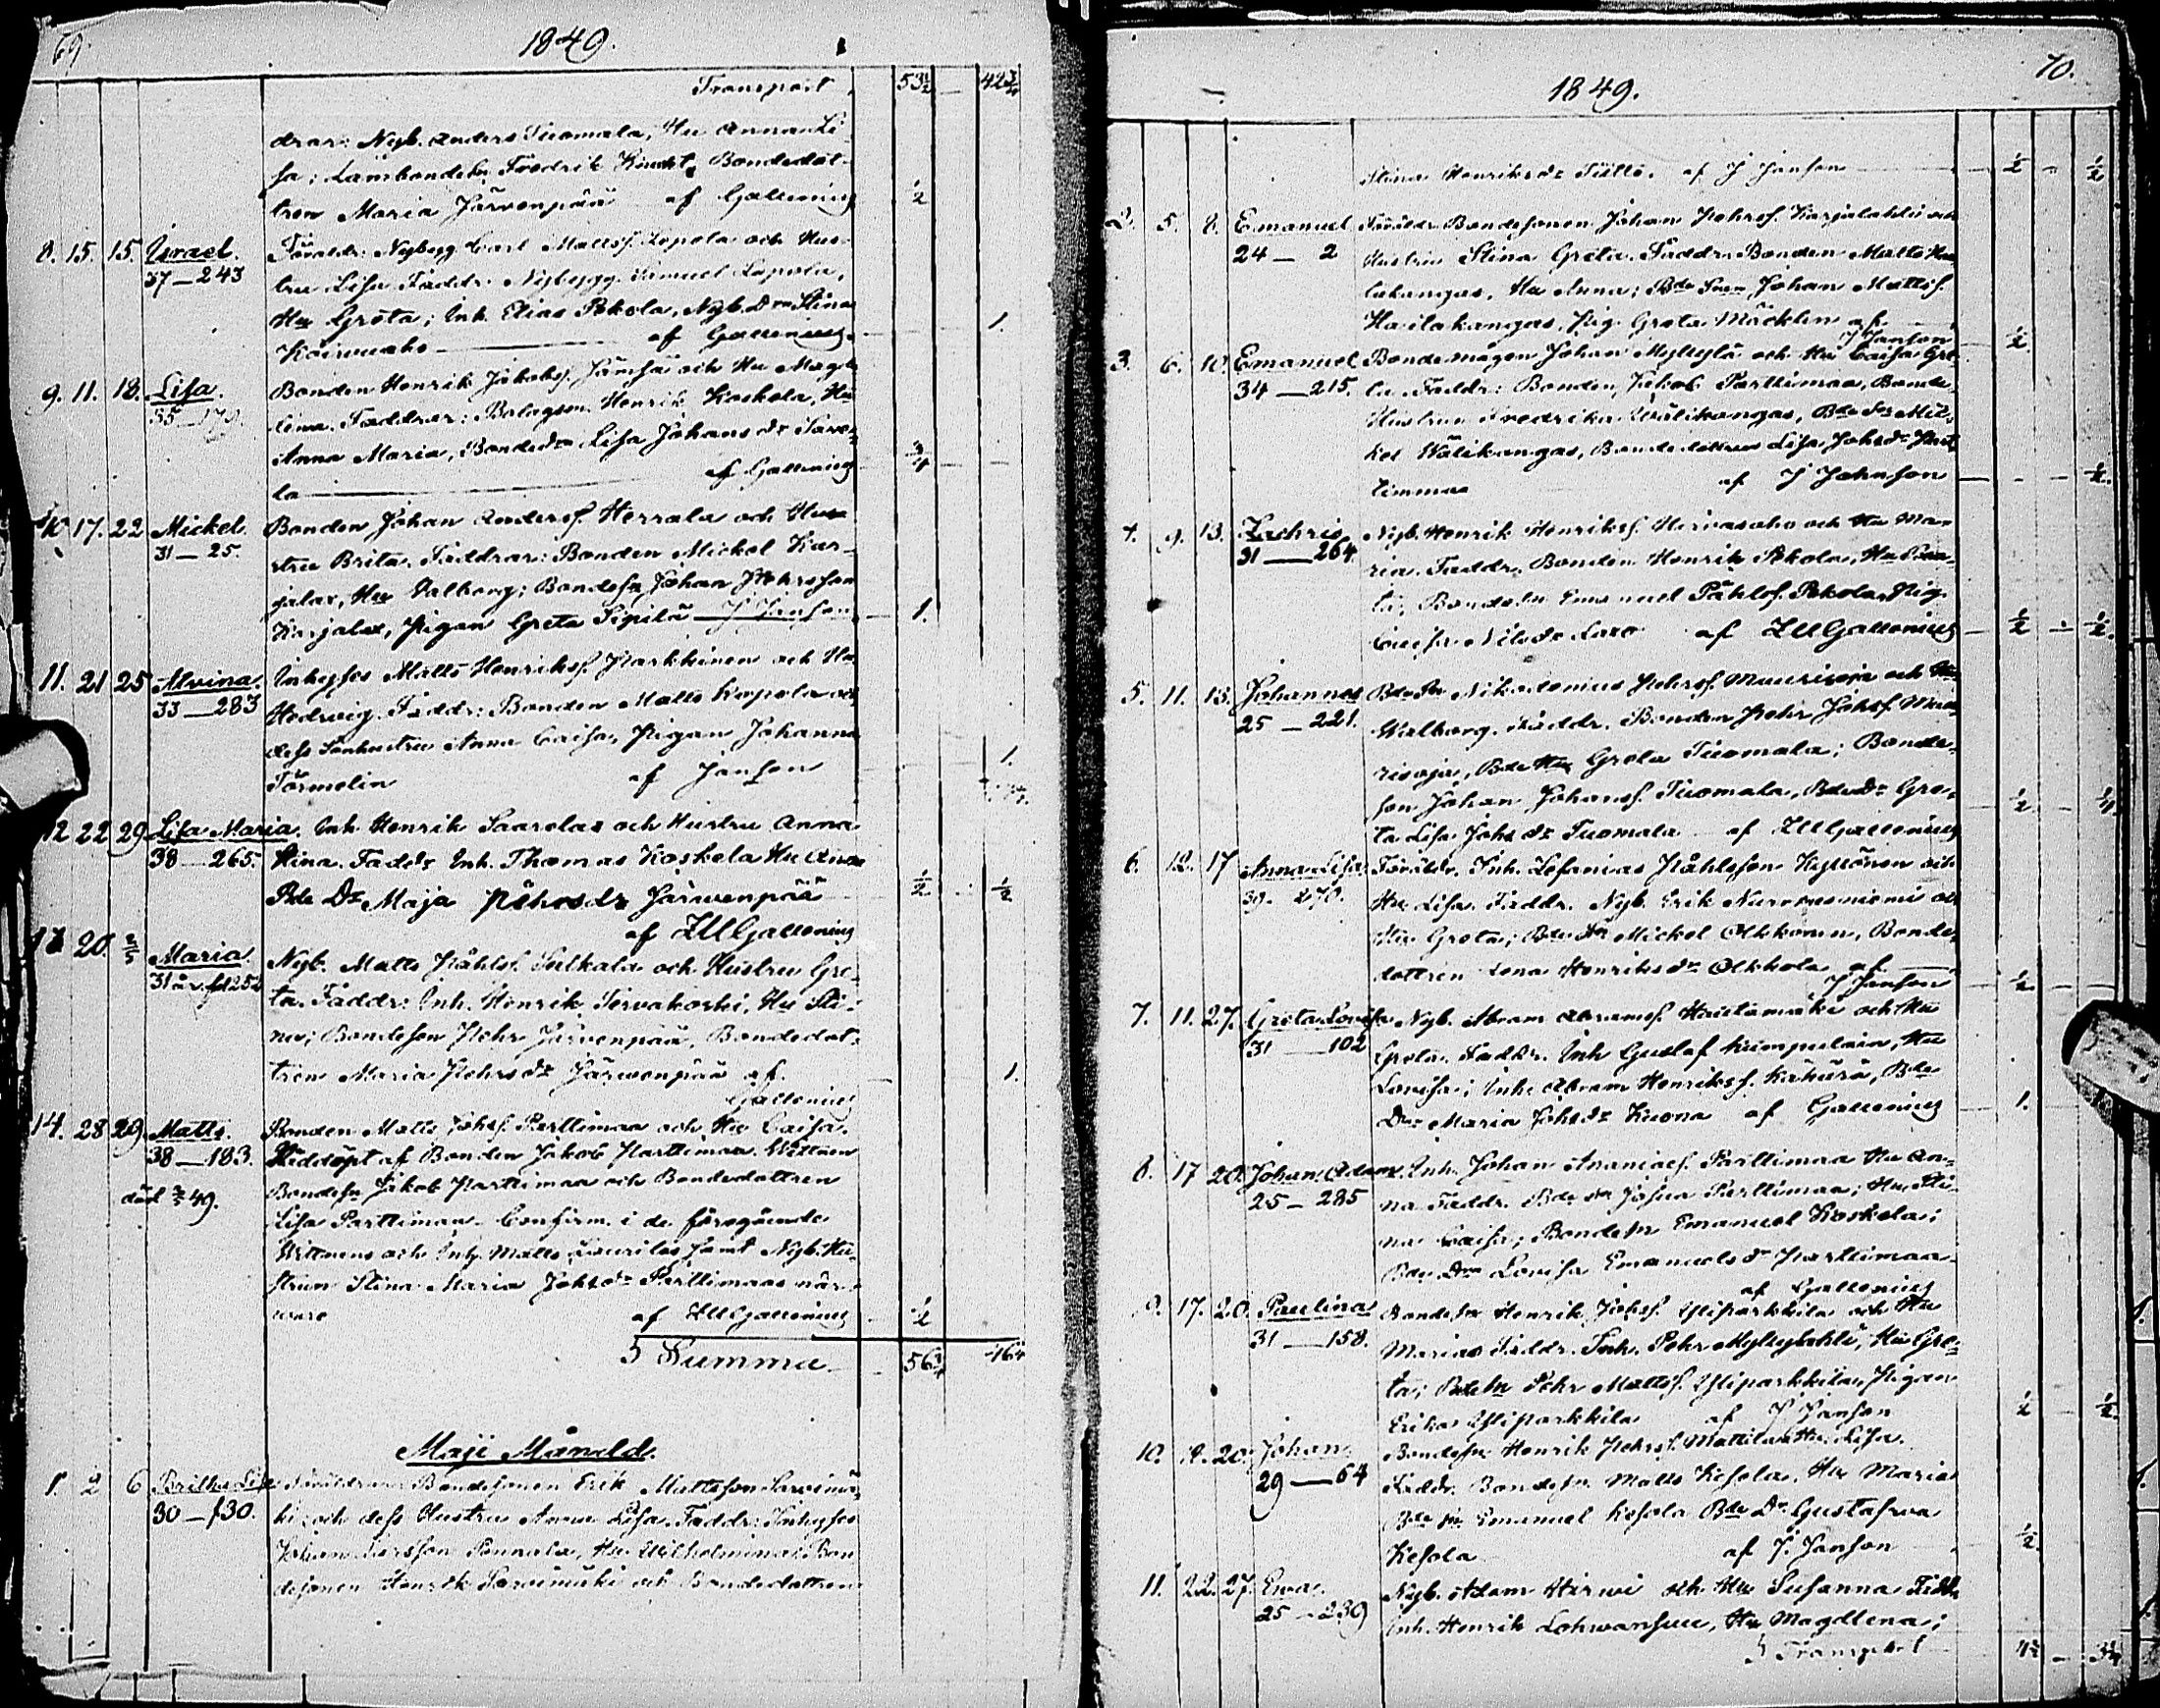 69.
1849.
Transport 53½ — 42¾
drar: Nyb. Anders Tuomala, Hu Anna Li-
sa; Fredrik Knekt, Bondedot-
tren Maria Järvenpää af Gallenius ½
8. 15. 15. Israel. Föräldr: Nybygg. Carl Mattss. Lopola och Hus-
37—243 tru Lisa. Faddr: Nybygg. Samuel Lapola,
Hu Greta; Inh. Elias Pokola, Nyb. Dr. Stina
Koirwaho — af Gallenius. 1.
9. 11. 18. Lisa. Bonden Henrik Jakobs. Jämsä och Hu Magda-
lena. Faddrar: Bolagsm. Henrik Koskola, Hu
Anna Maria, Bondedr Lisa Johans dr Save-
la — af Gallenius ¾ —
10 17. 22 Mickel. Bonden Johan Anderss. Herrala och Hus-
31—25. tru Brita. Faddrar: Bonden Mickel Kar-
jalax, Hu Valborg; Bondesn Johan Pehrsson
Karjalax, Pigan Greta Sipilä — J Janson 1.
11. 21 25 Alvina. Inhyses Matts Henrikss. Parkkinen och Hu
33—283 Hedwig. Faddr: Bonden Matts Kapola och
dess Sonhustru Anna Caisa, Pigan Johanna
Törmelin af Janson 1.
12 22 29 Lisa Maria. Inh. Henrik Saarelax och Hustru Anna
38—265. Stina. Faddr Inh. Thomas Koskela Hu Anna
Bde Dr Maja Pehrsdr Järwenpää ½ — ½
af ZUGallenius
13 20. 2/5 Maria. Nyb. Matts Påhls. Sulkala och Hustru Gre-
31 år fol 252 ta. Faddr: Inh. Henrik Tervakoski, Hu Sti-
na; Bondeson Pehr Järvenpää, Bondedot-
tren Maria Pehrsdr Järwenpää af 1.
Gallenius
14. 28 29 Matts. Bonden Matts Johss. Parttimaa och Hu Caisa.
38—183. Nöddöpt af Bonden Jakob Parttimaa. Wittnen
Bondesn Jakob Parttimaa och Bondedottren
död 49.
Lisa Parttimaa. Confirm. i de föregående
Wittnens och Inh. Matts Laurilas samt Nyb. Hu-
strun Stina Maria Johsdr Parttimaas när-
waro af ZUGallenius ½
S Summa 56¾ 46¼
Maji Månald.
1. 2 6 Britha Lisa Föräldrar Bondesonen Erik Mattsson Sarvimä-
30—130. ki och dess Hustru Anna Lisa. Faddr: Inhyses
Johan Larsson Pennala, Hu Wilhelmina; Bon-
desonen Henrik Sarvimäki och Bondedottren
70.
1849.
Stina Henriksdr Tülli. af J Janson ½ — ½
2. 5. 8. Emanuel Föräldr Bondesonen Johan Pehrss. Karjalahti och
24—2 Hustru Stina Greta. Faddr. Bonden Matts Hai-
lakangas, Hu Anna; Bde Son Johan Mattss.
Hailakangas, Pig. Greta Mäcklin af
J Janson ½
3. 6. 10. Emanuel Bondemågen Johan Myllylä och Hu Caisa Gre-
34—215. ta. Faddr: Bonden Jakob Parttimaa, Bonde
Hustrun Fredrika Wälikangas, Bde Sn Mic-
kel Wälikangas, Bondedottren Lisa Johsdr Part-
timmaa af J Johnson — ½.
4. 9. 13. Zachris Nyb. Henrik Henrikss. Hirvasaho och Hu Ma-
31—264. ria. Faddr. Bonden Henrik Pokola, Hu
Bondesn Emanuel Påhlss. Pokola, Pig.
Caisa Nilsdr Laxo af ZUGallenius ½ — ½.
5. 11. 13. Johannes Bde Sn Nikodemus Pehrss. Muurisoja och Hu
25—221. Walborg. Faddr. Bonden Pehr Johss. Muu-
risoja, Bde Hu Greta Tuomala; Bonde-
son Johan Johanss. Tuomala, Bde Dr Gre-
ta Lisa Johsdr Tuomala af ZUGallenius ½ — ¼
6. 12. 17 Anna Lisa Föräldr. Inh. Zefanias Påhlsson Kyllönen och
39. 270. Hu Lisa. Faddr. Nyb. Erik Nurmesniemi och
Hu Greta; Bde Sn Mickel Olkkonen, Bonde-
dottren Lena Henriksdr Olkkola af
J Janson ½ —
7. 11. 27. Greta Lovisa Nyb. Abram Abramss. Haitamäki och Hu
31—102 Greta. Faddr. Inh Gustaf Kumpulain, Hu
Lovisa; Inh. Abram Henrikss. Kähärä, Bde
Dr Maria Johsdr Kuona af Gallenius 1.
8. 17 20. Johan Adam. Inh. Johan Ananiass. Parttimaa Hu An-
25—285 na. Faddr. Bde Sn Josua Parttimaa; Hu Sti-
na Caisa; Bondesn Emanuel Koskela;
Bde Dr Lovisa Emanuelsdr Parttimaa
af Gallenius
9. 17. 20. Paulina Bondesn Henrik Johss. Yliparkkila och Hu
31—158. Maria. Faddr. Inh. Pehr Myllylahti, Hu Gre-
ta; Bdesn Pehr Mattss. Yliparkkila, Pigan
Erika Yliparkkila af J Janson ½ — ½.
10. 9. 20. Johan Bondesn Henrik Pehrss. Mattila Hu Lisa.
29—64 Faddr. Bondesn Matts Kesola, Hu Maria
Bde Sn Emanuel Kesola Bde Dr. Gustafwa
Kesola af J. Janson ½.
11. 22. 27. Ewa. Nyb. Adam Hirwi och Hu Susanna Faddr
25—239 Inh. Henrik Lohwansuu, Hu Magdlena;
S Transport 4½ — 3¼